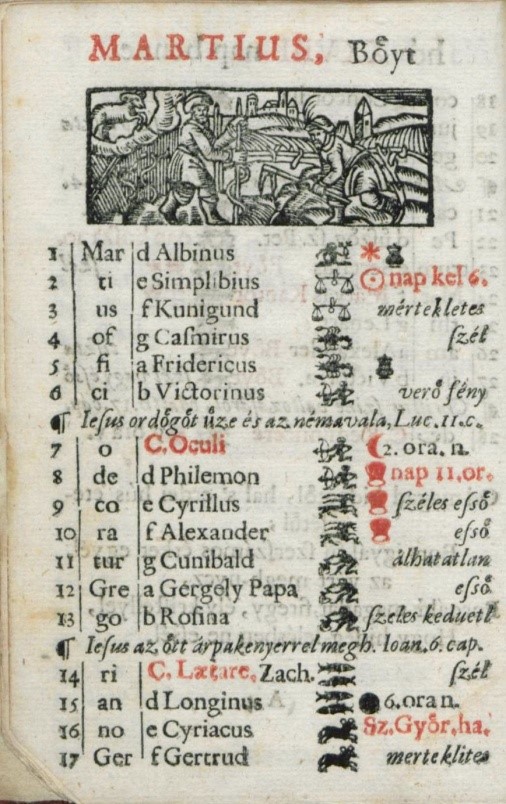 MARTIUS, Bőyt
1 Mar d Albinus
2 ti e Simplibius ☉ nap kel 6.
3 us f Kunigund mértekletes
4 of g Caſmirus ſzél
5 fi a Fridericus
6 ci b Victorinus verő fény
¶ Ieſus ordőgőt űze és az némavala, Luc. 11. c.
7 o C. Oculi ☾ 2. ora. n.
8 de d Philemon nap 11. or.
9 co e Cyrillus ſzéles eſső
10 ra f Alexander eſső
11 tur g Cunibald álhatatlan
12 Gre a Gergely Papa eſső
13 go b Roſina ſzeles keduetl
¶ Ieſus az őtt árpakenyerrel megh. Ioan. 6. cap.
14 ri C. Lætare, Zach. ſzél
15 an d Longinus ● 6. ora n.
16 no e Cyriacus Sz. Győr. ha.
17 Ger f Gertrud merteklites